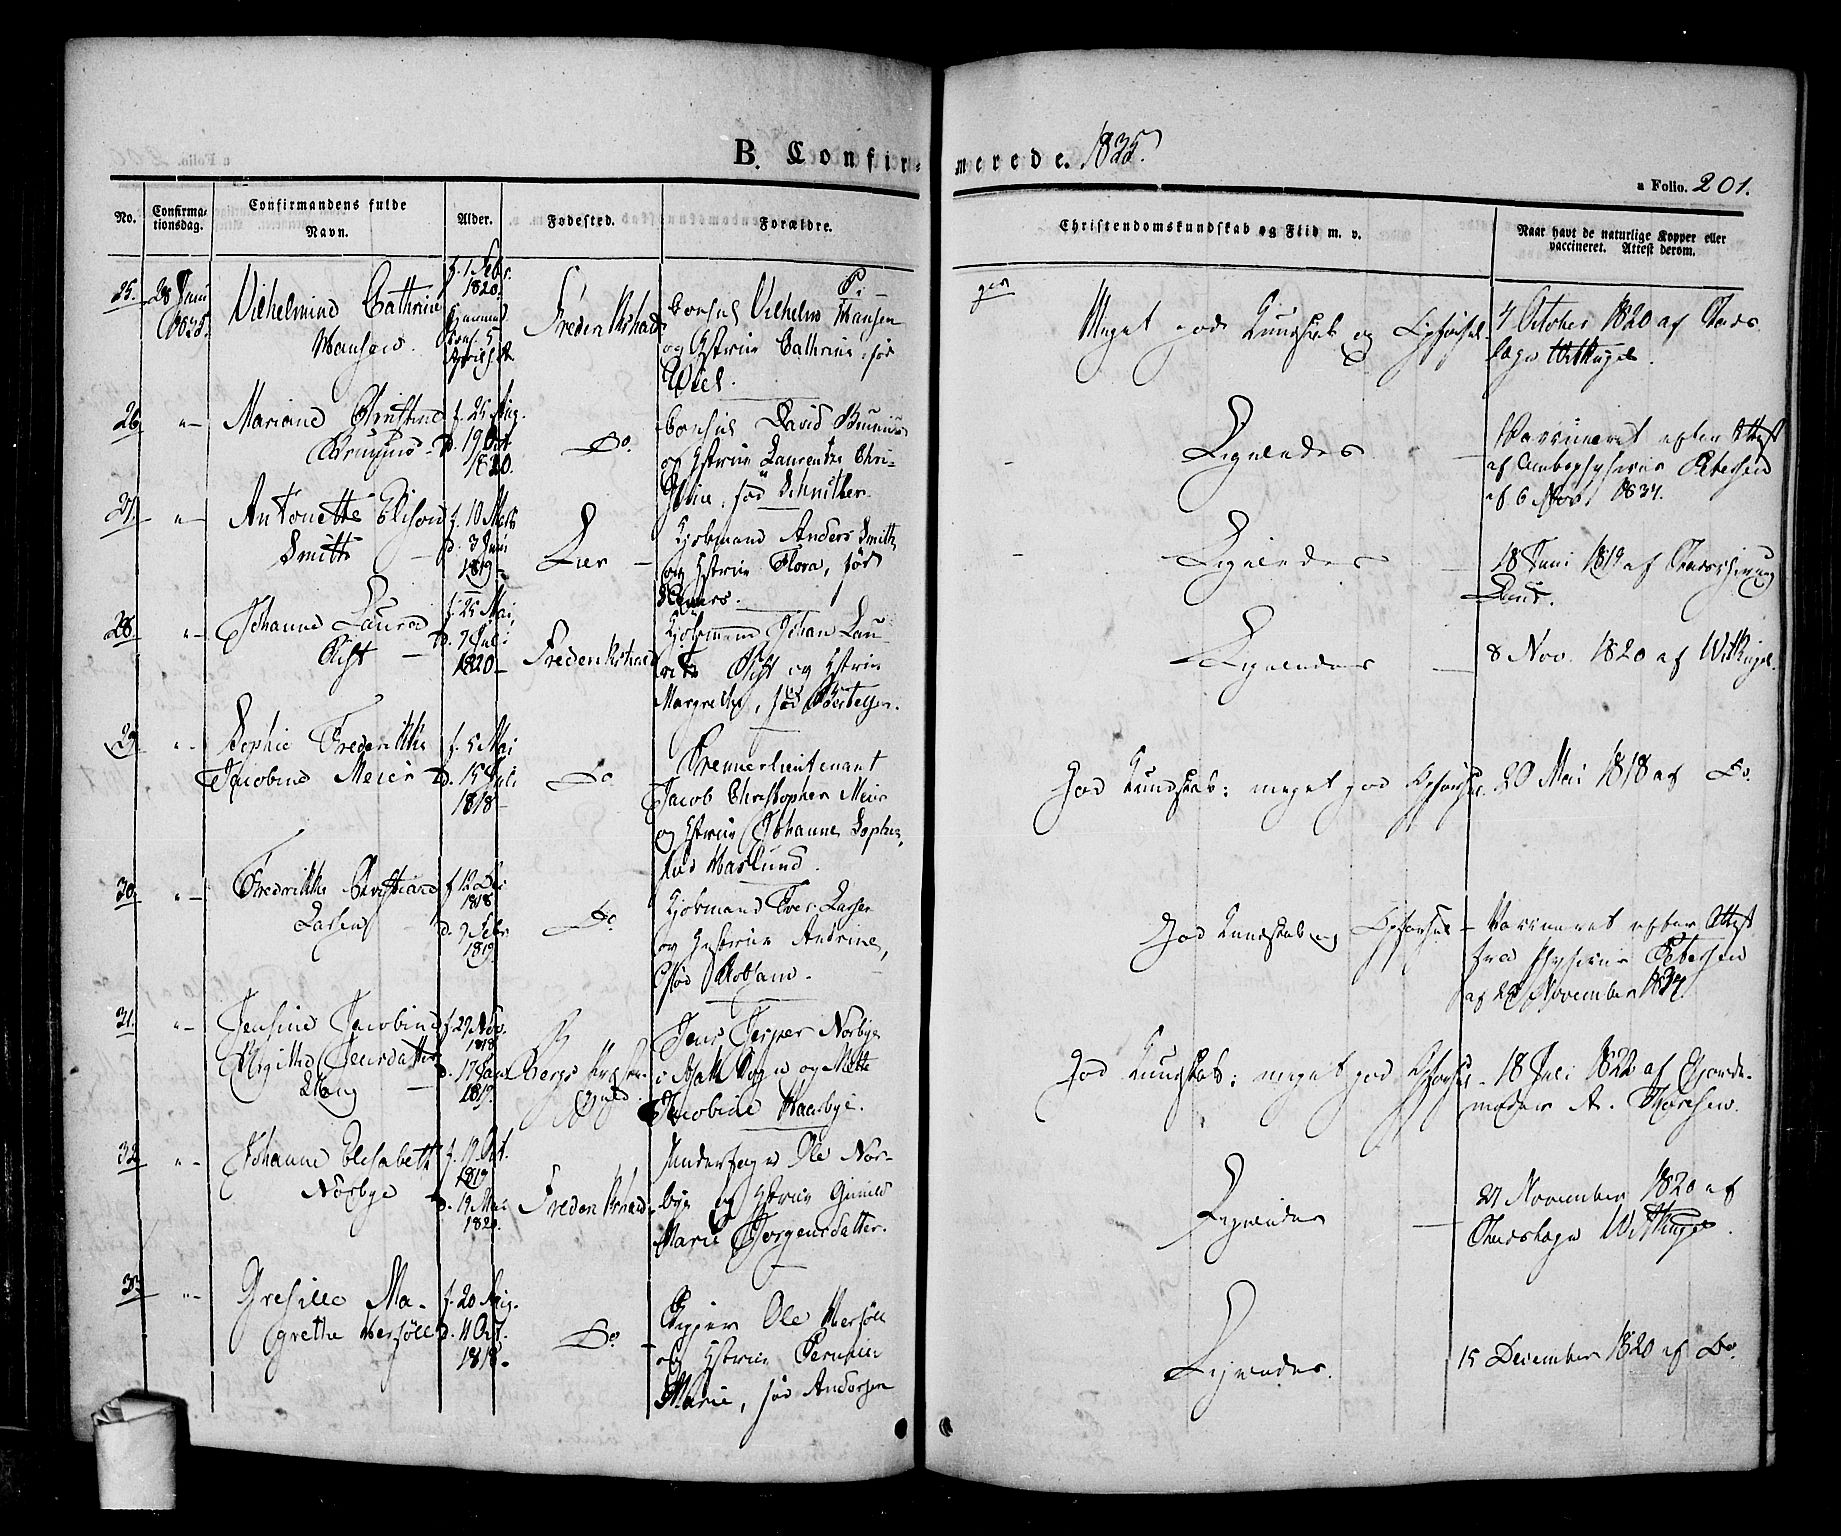 B. Confir-
merede. 1835.
a Folio. 201.
No.
Confirma-
tionsdag.
Confirmandens fulde
Navn.
Alder.
Fødested.
Forældre.
Christendomskundskab og Flid m. v.
Naar havt de naturlige Kopper eller
vaccineret. Attest derom.
25. 28 Juni
1835.
Vilhelmine Cathrine
Hansen.
f. 1 Febr.
1820.
Frederikstad
Consul Vilhelm P. Hansen
og Hstrue Cathrine, fød
Wiel.
Meget god Kundskab og Opførsel.
4 October 1820 af Stads-
læge Wittkugel.
26. " Mariane Christine
f. 25 Aug.
d. 19 Oct.
1820.
Do.
Consul David
og Hstrue Laurentze Chri-
stine, fød Schnitler.
Ligeledes
Vaccineret efter Attest
af Petersen
af 6 Nov. 1834.
27. " Antonette Elisa
Smith
f. 10 Marts
d. 3 Juni
1819
Lier
Kjøbmand Anders Smith
og Hstrue Flora, fød
Ligeledes
18 Juni 1819 af
Lund.
28. " Johanne Laura
f. 25 Mai,
d. 7 Juli
1820
Frederikstad
Kjøbmand Johan Lau-
ritz og Hstrue
Margrethe, fød Bertelsen.
Ligeledes
8 Nov. 1820 af Wittkugel.
29. " Sophie Frederikke
Jacobine Meier
f. 5 Mai
d. 15 Juli
1818
Do
Premierlieutenant
Jacob Christopher Meier
og Hstrue Johanne Sophie,
fød Haslund.
God Kundskab; meget god Opførsel.
20 Mai 1818 af Do.
30. " Fredrikke Christiane
Larsen
f. 12 Dec
1818
d. 7 Febr
1819
Do.
Kjøbmand Iver Larsen
og Hustrue Andrine,
fød
God Kundskab og Opførsel
Vaccineret efter Attest
fra Physicus Petersen
af November 1834.
31. " Jensine Jacobine
Jensdatter
f. 29 Nov.
1818
d. 17 Janr
1819.
Bergs Præste-
gjeld.
Jens Jesper Norbye
i Sogn og Mette
Jacobine Haarbye.
God Kundskab; meget god Opførsel
18 Juli 1822 af Gjorde-
moder A. Thoresen.
32. " Johanne Elisabeth
Norbye
f. 19 Oct.
1819
d. 19 Mai
1820.
Frederikstad
Underfoged Ole Nor-
bye og Hstrue Gunild
Marie Jørgensdatter.
Ligeledes
27 November 1820 af
Stadslæge Wittkugel.
33. " Gresille Ma-
grethe Hersøll
f. 20 Aug.
d. 11 Oct.
1818.
Do.
Ole Hersøll
og Hstrue Pernille
Marie, fød Andersen
Ligeledes.
15 December 1820 af Do.